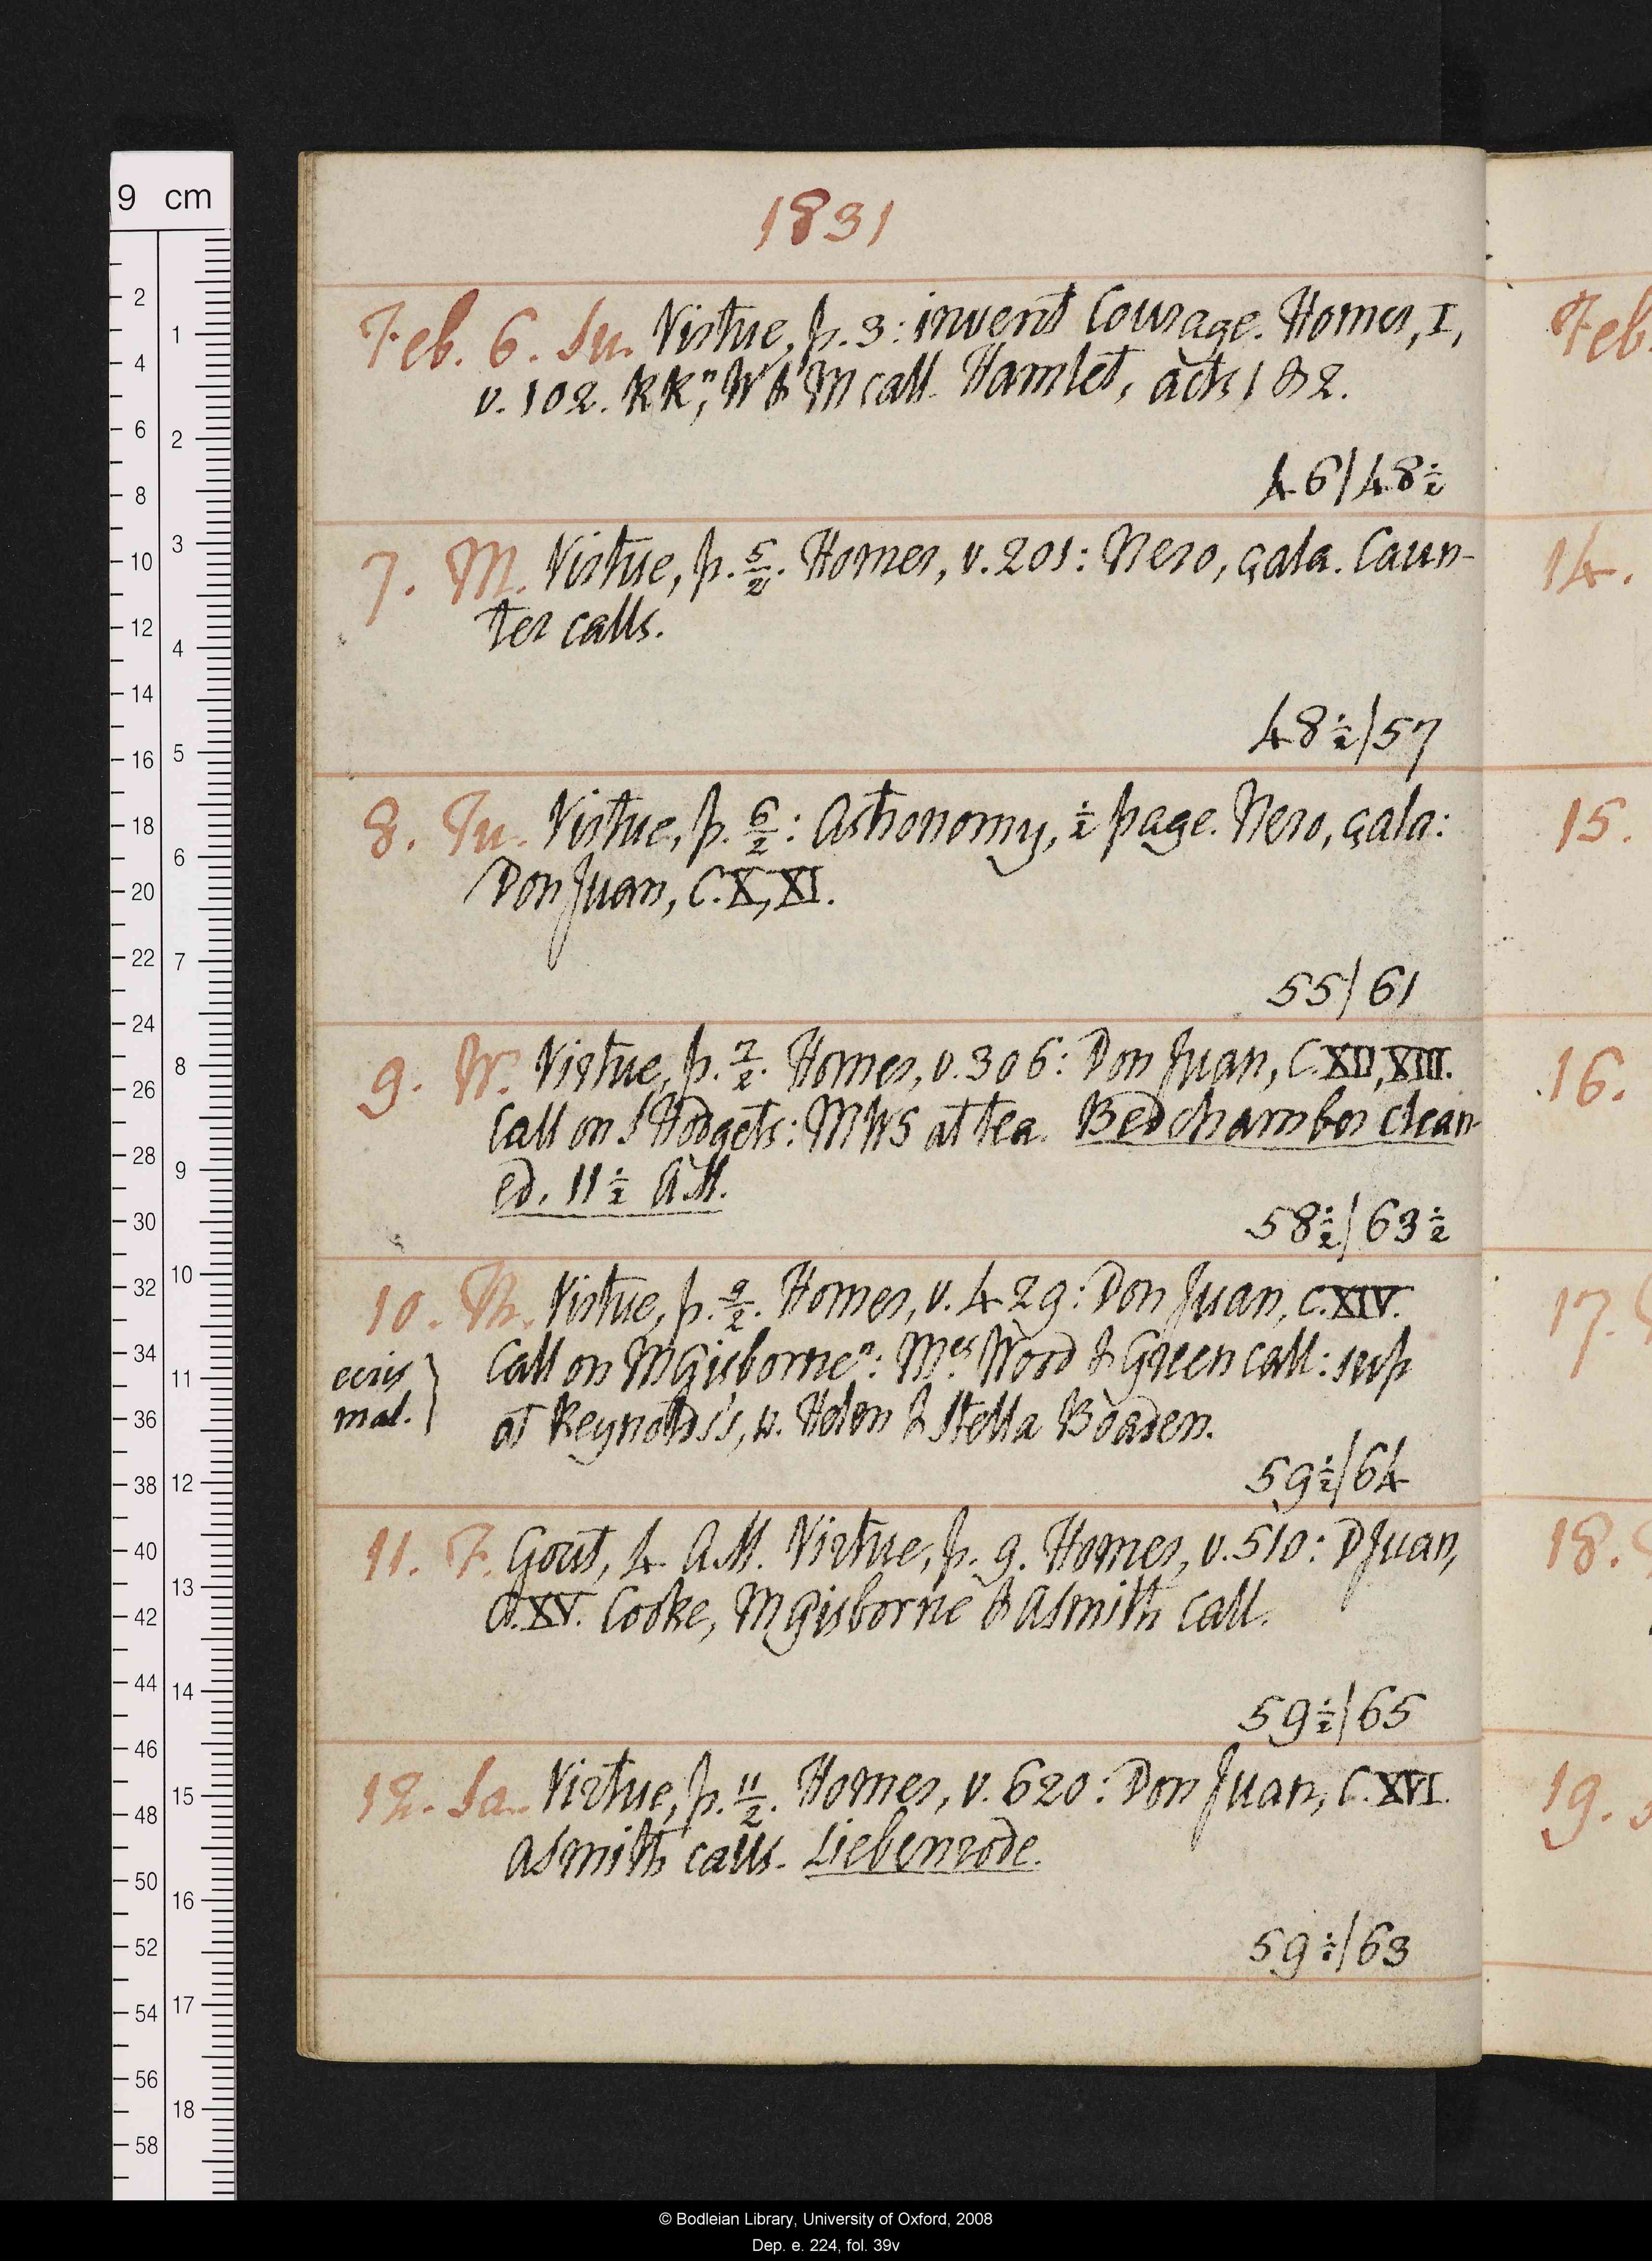 1831
Feb. 6. Su. Virtue, p. 3: invent Courage. Homer, I,
v. 102. KKn, W & M call. Hamlet, acts 1 & 2.
46/48½
7. M. Virtue, p. 5/2. Homer, v. 201: Nero, çala. Caun-
ter calls.
48½/57
8. Tu. Virtue, p. 6/2: Astronomy, ½ page. Nero, çala:
Don Juan, C. X, XI.
55/61
9. W. Virtue, p. 7/2. Homer, v. 306: Don Juan, C. XII, XIII.
Call on J Hodgets: MWS at tea. Bedchamber clean-
ed. 11½ A.M.
58½/63½
10. Th. Virtue, p. 9/2. Homer, v. 429: Don Juan, C. XIV.
Call on MGisborne n: Mrs Wood & Green call: sup
at Reynolds's, w. Helen & Stella Boaden.
ecris
mal.
59½/64
11. F. Gout, 4 A.M. Virtue, p. 9. Homer, v. 510: DJuan,
C. XV. Cooke, MGisborne & ASmith call.
59½/65
12. Sa. Virtue, p. 11/2. Homer, v. 620: Don Juan, C. XVI.
ASmith calls. Liebenrode.
59½/63
Feb.
14.
15.
16.
17.
18.
19.
9 cm
2
4
6
8
10
12
14
16
18
20
22
24
26
28
30
32
34
36
38
40
42
44
46
48
50
52
54
56
58
1
2
3
4
5
6
7
8
9
10
11
12
13
14
15
16
17
18
© Bodleian Library, University of Oxford, 2008
Dep. e. 224, fol. 39v